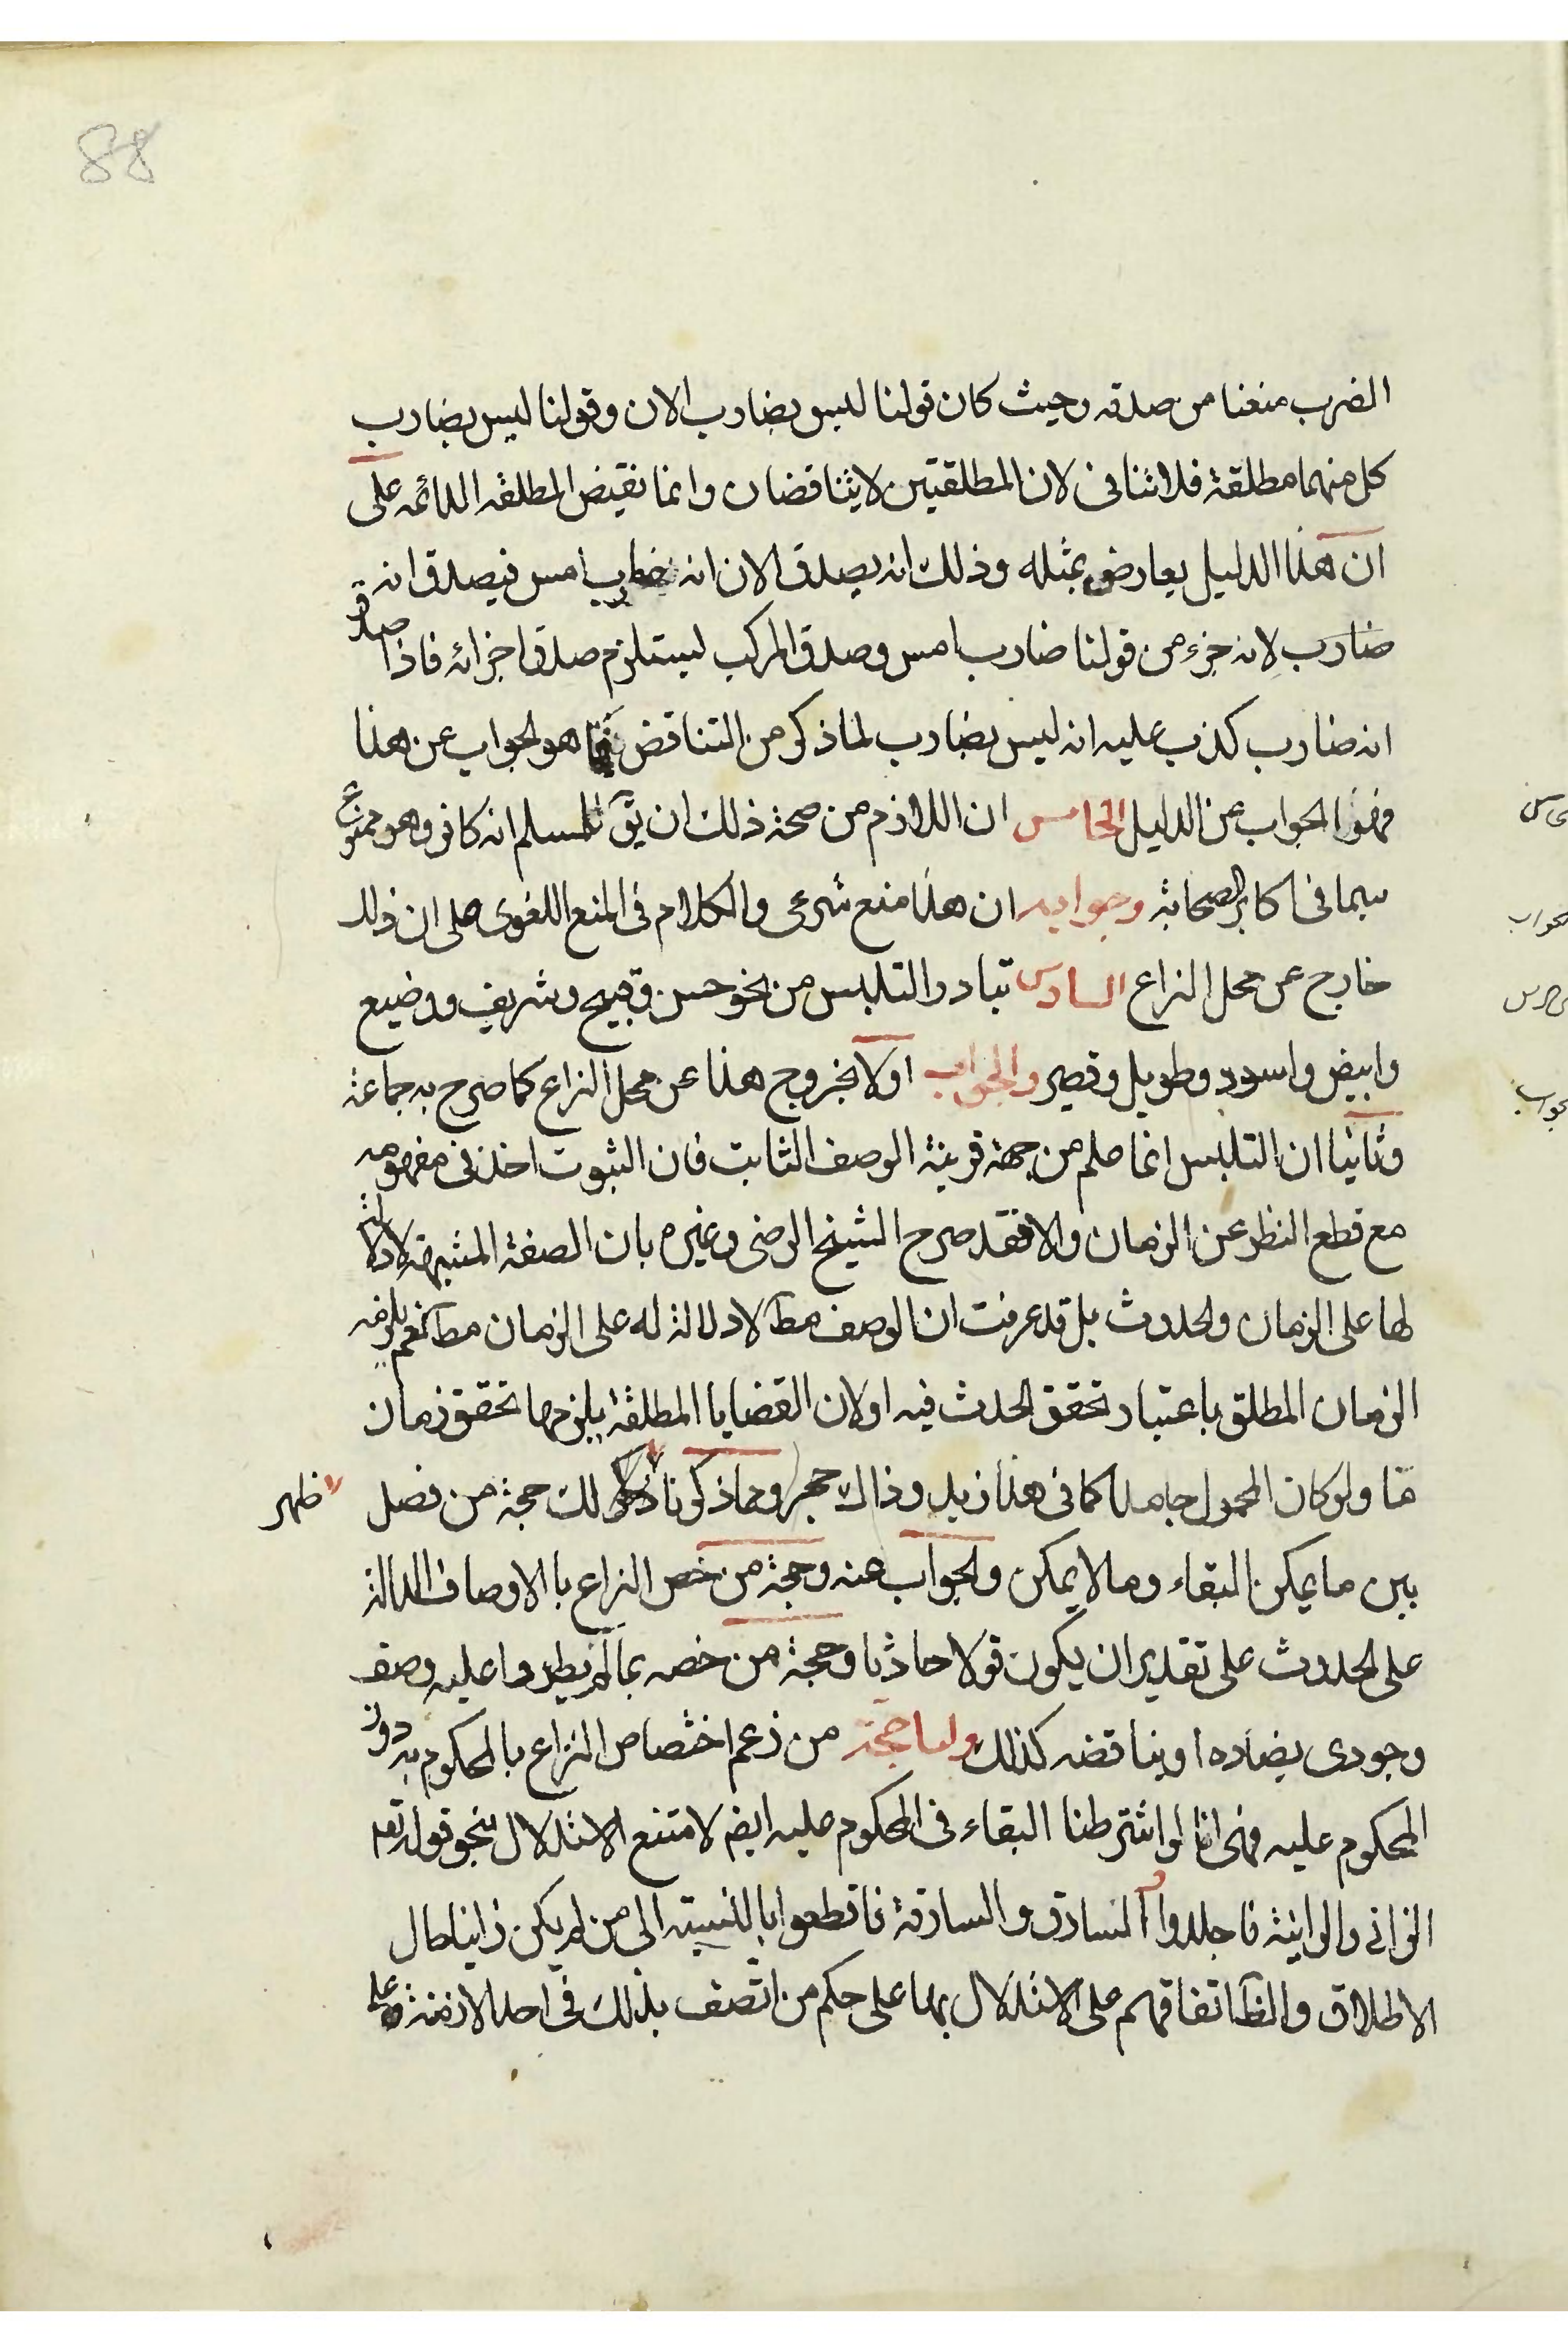 88
الضرب منعنا من صدقه وحيث كان قولنا ليس بضارب الان وقولنا ليس بضارب
كل منهما مطلقة فلا تنافى لان المطلقتين لا يتناقضان وانما نقيض المطلقه الدائمه على
ان هذا الدليل يعارض بمثله وذلك انه يصدق الان انه ضارب امس فيصدق انه
ضارب لانه جزء من قولنا ضارب امس وصدق المركب ليستلزم صدق اجزائه فاذا صدق
انه ضارب كذب عليه انه ليس بضارب لما ذكر من التناقض فما هو الجواب عن هذا
فهو الجواب عن الدليل الخامس ان اللازم من صحة ذلك ان يق للمسلم انه كافر وهو ممنوع
سيما فى اكابر الصحابة وجوابه ان هذا منع شرعى والكلام فى المنع اللغوى على ان ذلك
خارج عن محل النزاع السادس تبادر التلبس من نحو حسن وقبيح وشريف ووضيع
وابيض واسود وطويل وقصير والجواب اولا بخروج هذا عن محل النزاع كما صرح به جماعة
وثانيا ان التلبس انما علم من جهة قرينة الوصف الثابت فان الثبوت اخذ فى مفهومه
مع قطع النظر عن الزمان والا فقد صرح الشيخ الرضى وغيره بان الصفة المشبهة لا دلالة
لها على الزمان والحدوث بل قد عرفت ان الوصف مط لا دلالة له على الزمان مط نعم يلزمه
الزمان المطلق باعتبار تحقق الحدث فيه او لان القضايا المطلقة يلزمها تحقق زمان
ما ولو كان المحمول جامدا كما فى هذا زيد وذاك حجر ومما ذكرنا لك حجة من فصل
ظهر
بين ما يمكن البقاء وما لا يمكن والجواب عنه وحجة من خص النزاع با الاوصاف الدالة
على الحدوث على تقدير ان يكون قولا حادثا وحجة من خصه بما لم يطرو اعليه وصف
وجودى يضاده او يناقضه كذلك واما حجة من زعم اختصاص النزاع بالمحكوم به دون
المحكوم عليه فهى انا لو اشترطنا البقاء فى المحكوم عليه ايضم لامتنع الاستدلال بنحو قوله تعه
الزانى والزانية فاجلدوا والسارق والسارقة فاقطعوا با النسبة الى من لم يكن زانيا حال
الاطلاق والظ اتفاقهم على الاستدلال بهما على حكم من اتصف بذلك فى احد الازمنة وعلى
جواب
جواب